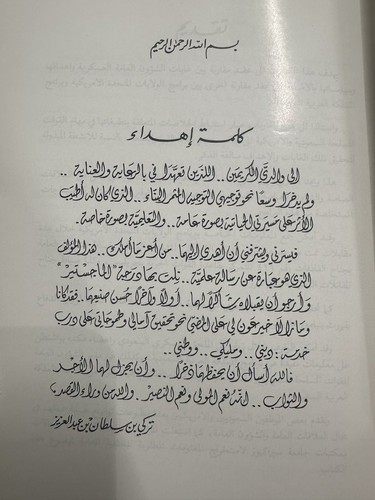 بسم الله الرحمن الرحيم
كلمة إهداء
الى والديَّ الكريمين.. اللذين تعهَّداني بالرعاية والعناية..
ولم يدخرا وسعًا نحو توجيهي التوجيه المثمر البنَّاء.. الذي كان له أطيب
الأثر على مسيرتي الحياتية بصورة عامة.. والتعليمية بصورة خاصة.
فيسرني ويشرفني أن أهدي إليهما.. من أعز ما أملك.. هذا المؤلف
الذي هو عبارة عن رسالة علمية.. نلت بها درجة "الماجستير"
وأرجو أن يقبلاه شاكرًا لهما.. أولًا وآخرًا حُسن صنيعهما.. فقد كانا
وما زالا خير عون لي على المضي نحو تحقيق آمالي وطموحاتي على درب
خدمة: ديني.. ومليكي.. ووطني..
فالله أسأل أن يحفظهما ذخرًا.. وأن يجزل لهما الأجر
والثواب.. انه نعم المولى ونعم النصير.. والله من وراء القصد،
تركي بن سلطان بن عبدالعزيز